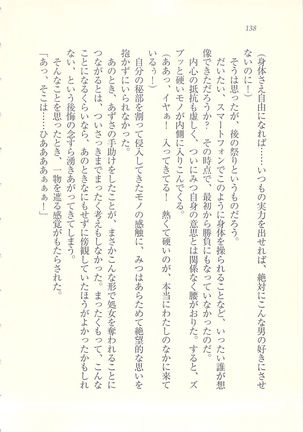 138
(身体さえ自由になれば……いつもの実力を出せれば、絶対にこんな男の好きにさせ
ないのに！)
そうは思ったが、後の祭りというものだろう。
だいたい、スマートフォンでこのように身体を操られることなど、いったい誰が想
像できただろうか？　その時点で、最初から勝負にもなっていなかったのだ。
内心の抵抗も虚しく、ついにみつ自身の意思とは関係なく腰がおりた。すると、ズ
ブッと硬いモノが内側に入りこんでくる。
(ああっ、イヤぁ！　入ってきてる！　熱くて硬いのが、本当にわたしのなかに来て
いるぅ！)
自分の秘部を割って侵入してきたモノの感触に、みつはあらためて絶望的な思いを
抱かずにいられなかった。
あのとき、あずさの手助けをしたことが、まさかこんな形で処女を奪われることに
つながるとは、ついさっきまでまったく考えもしなかった。まったくもって、こんな
ことになるくらいなら、あのときなにもせずに傍観していたほうがよかったかもしれ
ない、という後悔の念すら湧きあがってきてしまう。
そんなことを思ったとき、一物を遮る感覚がもたらされた。
「あっ、そこは……ひああああぁぁ！」